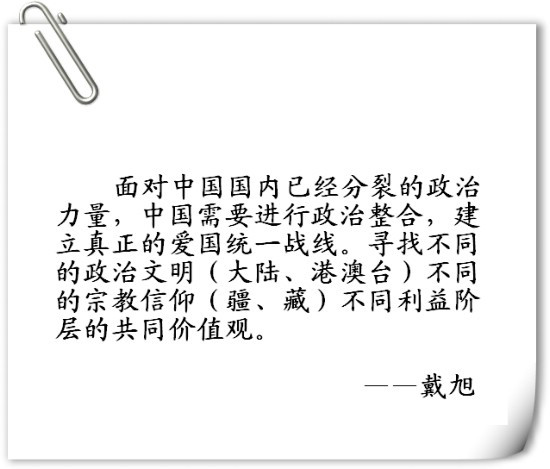 面对中国国内已经分裂的政治
力量，中国需要进行政治整合，建
立真正的爱国统一战线。寻找不同
的政治文明（大陆、港澳台）不同
的宗教信仰（疆、藏）不同利益阶
层的共同价值观。
——戴旭